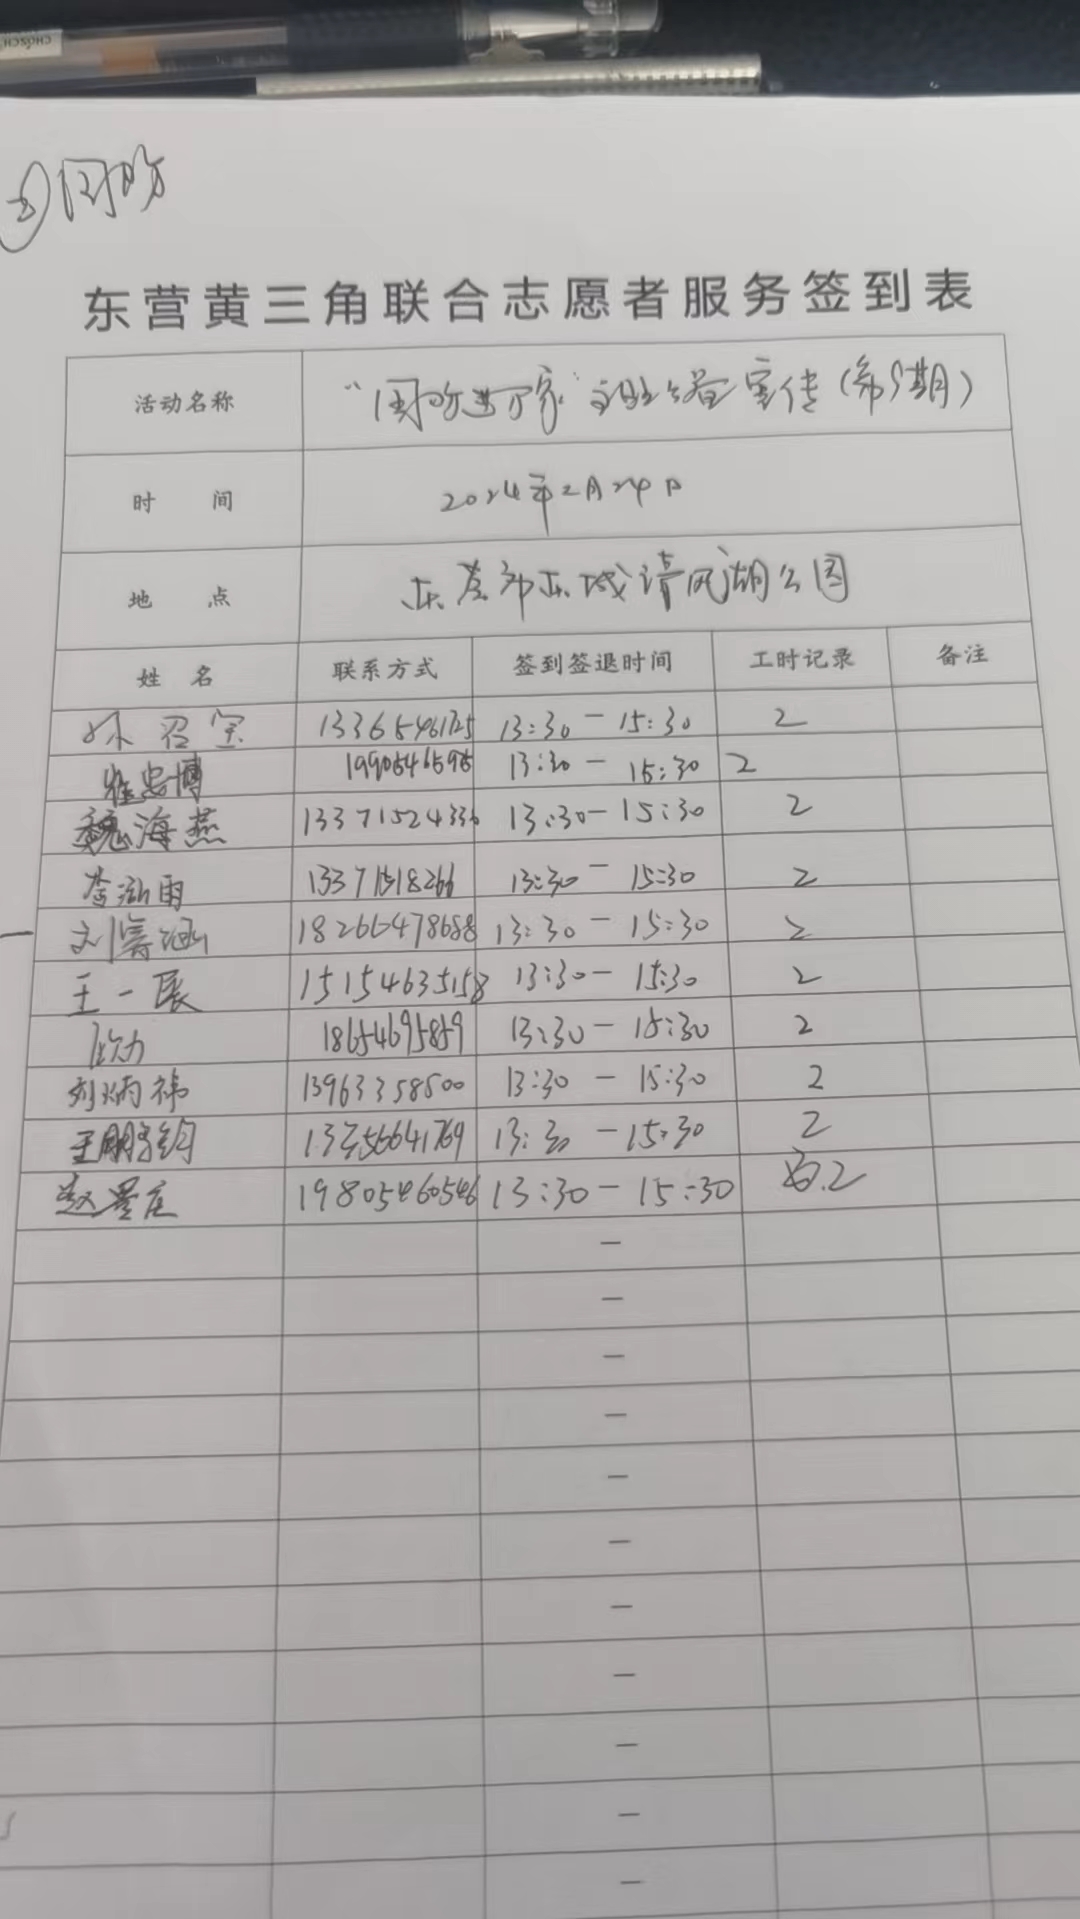 国防
东营黄三角联合志愿者服务签到表
活动名称 "国防进万家" 宣传(第9期)
时 间 2024年2月24日
地 点 东营市东城清风湖公园
姓 名 联系方式 签到签退时间 工时记录 备注
孙召宝 13365461725 13:30 — 15:30 2
崔忠博 13:30 — 15:30 2
魏海燕 13371524336 13:30 — 15:30 2
李泓雨 13371518266 13:30 — 15:30 2
刘 涵 18266478688 13:30 — 15:30 2
王一辰 15154635158 13:30 — 15:30 2
18654695859 13:30 — 15:30 2
刘炳祎 13963358500 13:30 — 15:30 2
王鹏钧 13:30 — 15:30 2
赵星 19805460546 13:30 — 15:30 2
—
—
—
—
—
—
—
—
—
—
—